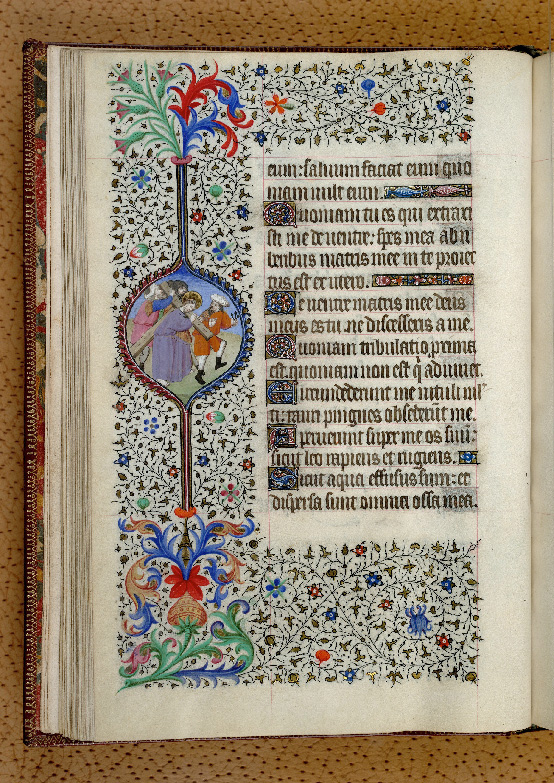 eum: salvum faciat eum quo
niam vult eum.
Quoniam tu es qui extraxi
sti me de ventre: spes mea ab u
beribus matris mee in te proiec
tus est ex utero.
De ventre matris mee deus
meus es tu. ne discesseris a me.
Quoniam tribulatio proxima
est. quoniam non est q̇ adiuvet.
Circumdederunt me vituli mul
ti: tauri pingues obsederūt me.
Aperuerunt super me os suū:
sicut leo rapiens et rugiens.
Sicut aqua effusus sum: et
dispersa sunt omnia ossa mea.